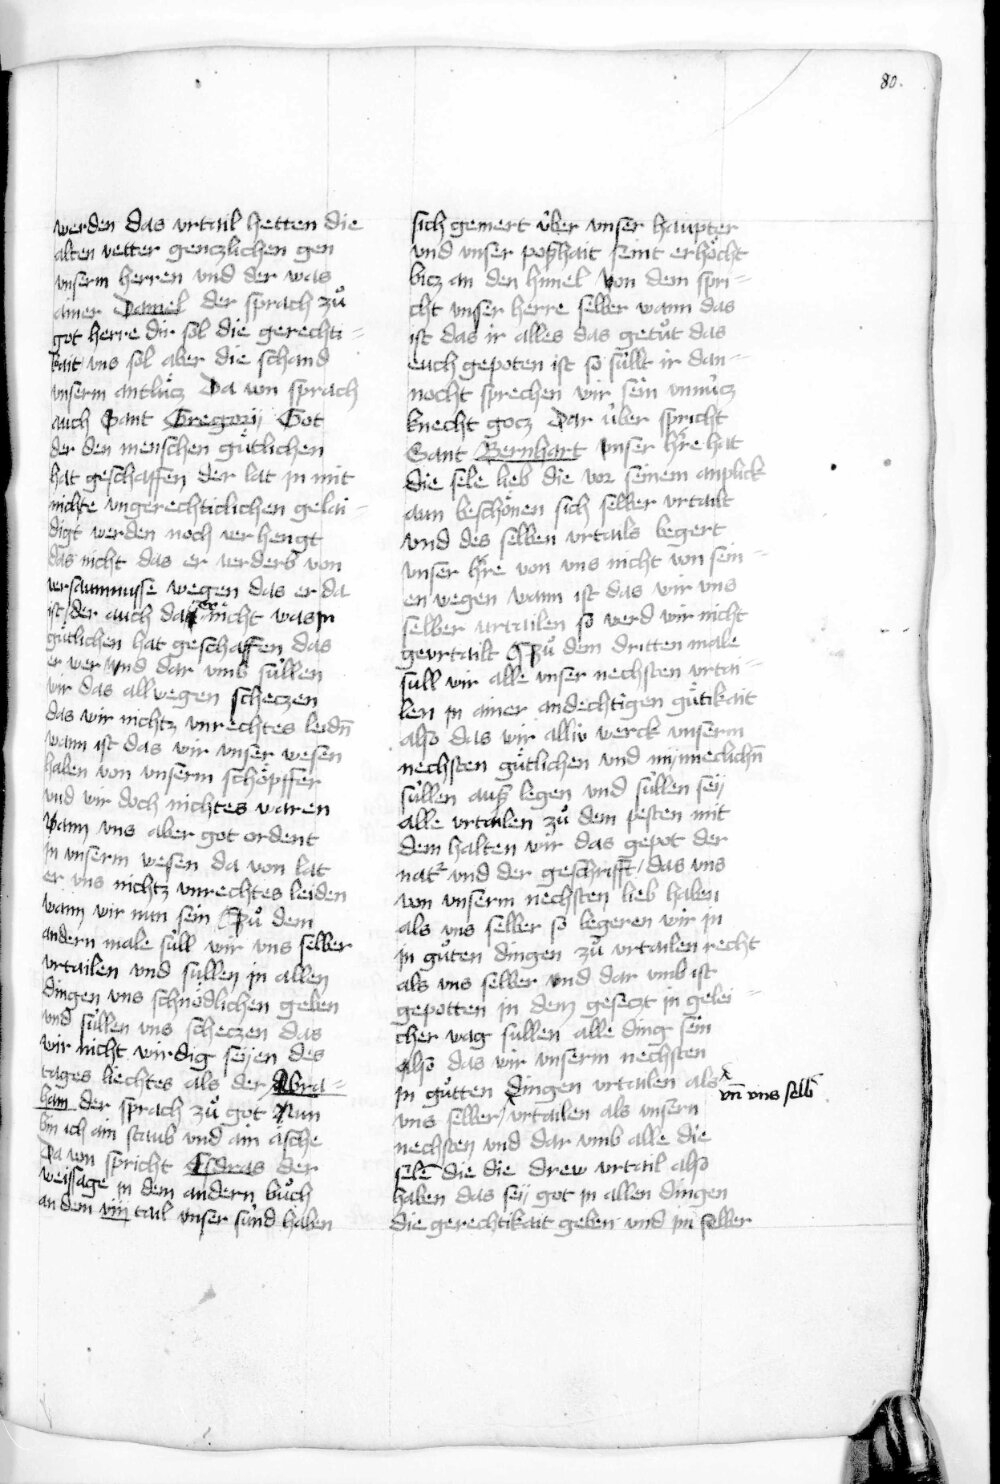 80.
werden das vrtail hetten die
alten vetter genczlichen gen
vnserm herren vnd der was
ainer Daniel der sprach zuͦ
got herre dir sol die gerechti=
kait vns sol aber die schand
vnserm antlücz Da von sprach
auch Sant Gregorij Got
der den menschen gütlichen
hat geschaffen der lat jn mit
nichte vngerechticlichen gelai=
digt werden noch verhengt
das nicht das er verderb von
versaumnusse wegen das er da
ist / der auch da nicht was jn
gütlichen hat geschaffen das
er wer vnd dar vmb süllen
wir das allwegen scheczen
das wir nichtz vnrechtes leidn̄
wann ist das wir vnser wesen
haben von vnserm schöpffer
vnd wir doch nichtes waren
wann vns aber got ordent
jn vnserm wesen da von lat
er vns nichtz vnrechtes leiden
wann wir nun sein Zuͦ dem
andern male süll wir vns selber
vrtailen vnd sullen jn allen
dingen vns schnödlichen geben
vnd süllen vns scheczen das
wir nicht wirdig seijen des
tages liechtes als der Abra=
ham der sprach zuͦ got Nun
bin ich ain staub vnd ain äsche
Da von spricht Esdras der
weissage in dem andern buͦch
an dem viij tail vnser sünd haben
sich gemert über vnser haupter
vnd vnser poßhait seint erhöcht
bicz an den himel Von dem spri=
cht vnser herre selber wann das
ist das ir alles das getuͦt das
euch gepoten ist so süllt ir dan=
nocht sprechen wir sein vnnücz
knecht gocz Dar über spricht
Sant Bernhart vnser h're hat
die sele lieb die vor seinem anplick
aun beschönen sich selber vrtailt
vnd des selben vrtails begert
vnser h're von vns nicht von sein=
en wegen wann ist das wir vns
selber urtailen so werd wir nicht
gevrtailt Zuͦ dem dritten male
sull wir alle vnser nechsten vrtai=
len jn ainer andechtigen gütikait
also das wir alliu werck vnserm
nechsten gütlichen vnd mijnneclichn̄
süllen auß legen vnd süllen seij
alle vrtailen zuͦ dem pesten mit
dem halten wir das gepot der
nat᷑ vnd der geschrifft / das vns
von vnserm nechsten lieb haben
als vns selber so begeren wir jn
jn guͦten dingen zuͦ vrtailen recht
als vns selber vnd dar vmb ist
gepotten in dem gesetzt in gelei=
cher wag sullen alle ding sein
also das wir vnserm nechsten
jn guͦtten dingen vrtailen als
vn̄ vns selb᷑
vns selber / vrtailen als vnsern
nechsten vnd dar vmb alle die
selē die die drew vrtail also
haben das seij got jn allen dingen
die gerechtikait geben vnd jn selber